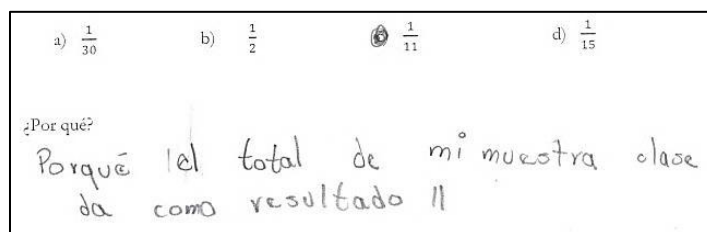 a) 1/30 b) 1/2 c) 1/11 d) 1/15
¿Por qué?
Porqué el total de mi muestra clase
da como resultado 11